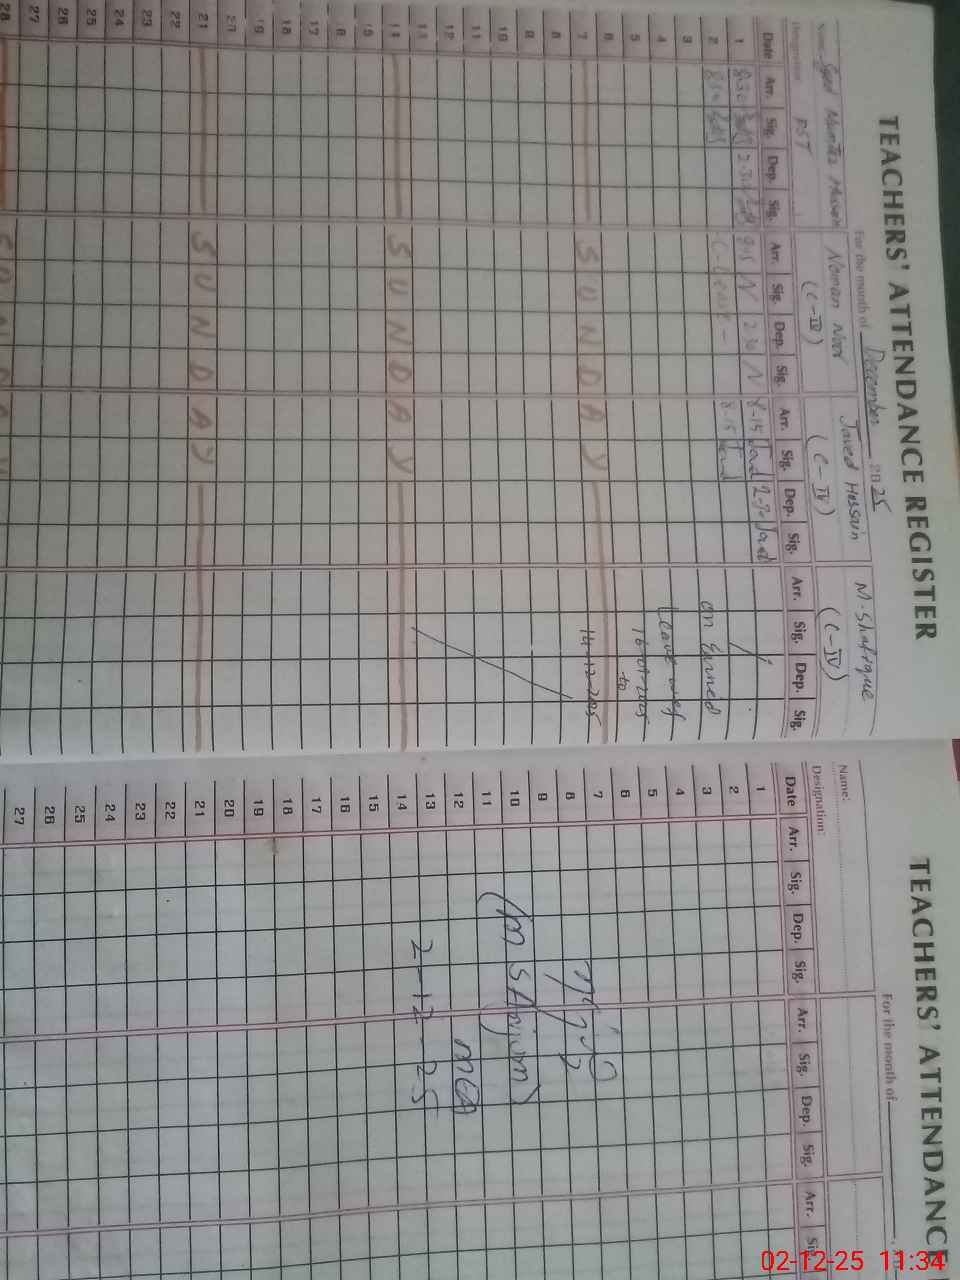 TEACHERS' ATTENDANCE REGISTER
For the month of December 2025
Name: Syed Mumtaz Hussain Noman Noor Javed Hussain M. Shafique
Designation PST (C-IV) (C-IV) (C-IV)
Date Arr. Sig. Dep. Sig. Arr. Sig. Dep. Sig. Arr. Sig. Dep. Sig. Arr. Sig. Dep. Sig.
1 830 2-30 8-15 N 230 N 8-15 Javd 2-30 Javd
2 830 C-Leave - 8-15 Javd on Earned
3 Leave wef
4 16-01-2025
5 to
6 14-12-2025
7 SUNDAY
8
9
10
11
12
13
14 SUNDAY
15
16
17
18
19
20
21 SUNDAY
22
23
24
25
26
27
28 SUNDAY
TEACHERS' ATTENDANCE
For the month of
Name:
Designation:
Date Arr. Sig. Dep. Sig. Arr. Sig. Dep. Sig. Arr. Sig.
1
2
3
4
5
6
7
8
9
10 (M S Anjum)
11
12 MEA
13 2-12-25
14
15
16
17
18
19
20
21
22
23
24
25
26
27
02-12-25 11:34